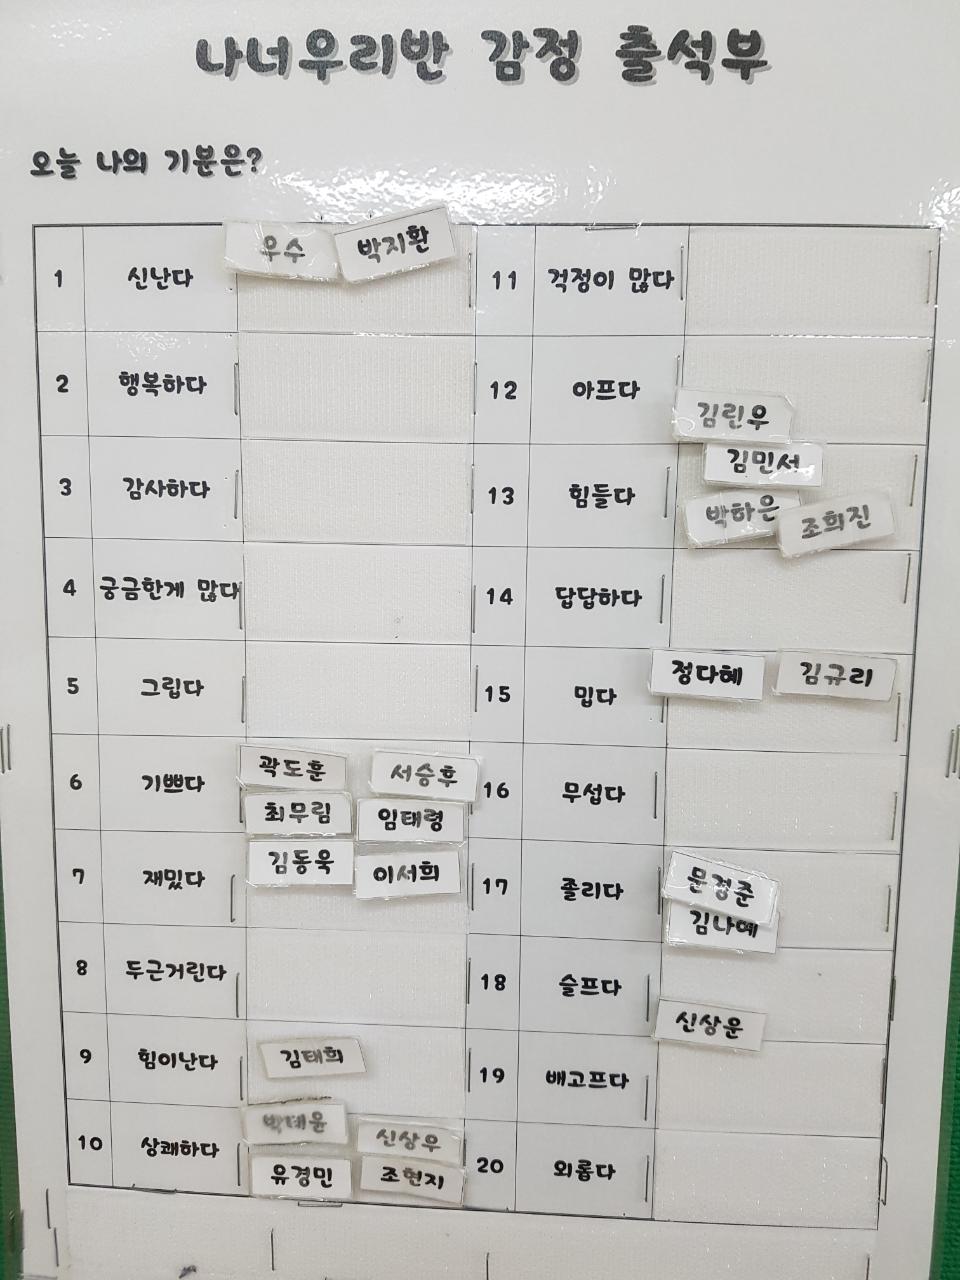 나너우리반 감정 출석부
오늘 나의 기분은?
1 신난다 우수 박지환
2 행복하다
3 감사하다
4 궁금한게 많다
5 그립다
6 기쁘다 곽도훈 서승후
최무림 임태령
7 재밌다 김동욱 이서희
8 두근거린다
9 힘이난다 김태희
10 상쾌하다 신상우
유경민 조현지
11 걱정이 많다
12 아프다 김린우
13 힘들다 김민서
박하은 조희진
14 답답하다
15 밉다 정다혜 김규리
16 무섭다
17 졸리다 문경준
김나예
18 슬프다
신상운
19 배고프다
20 외롭다